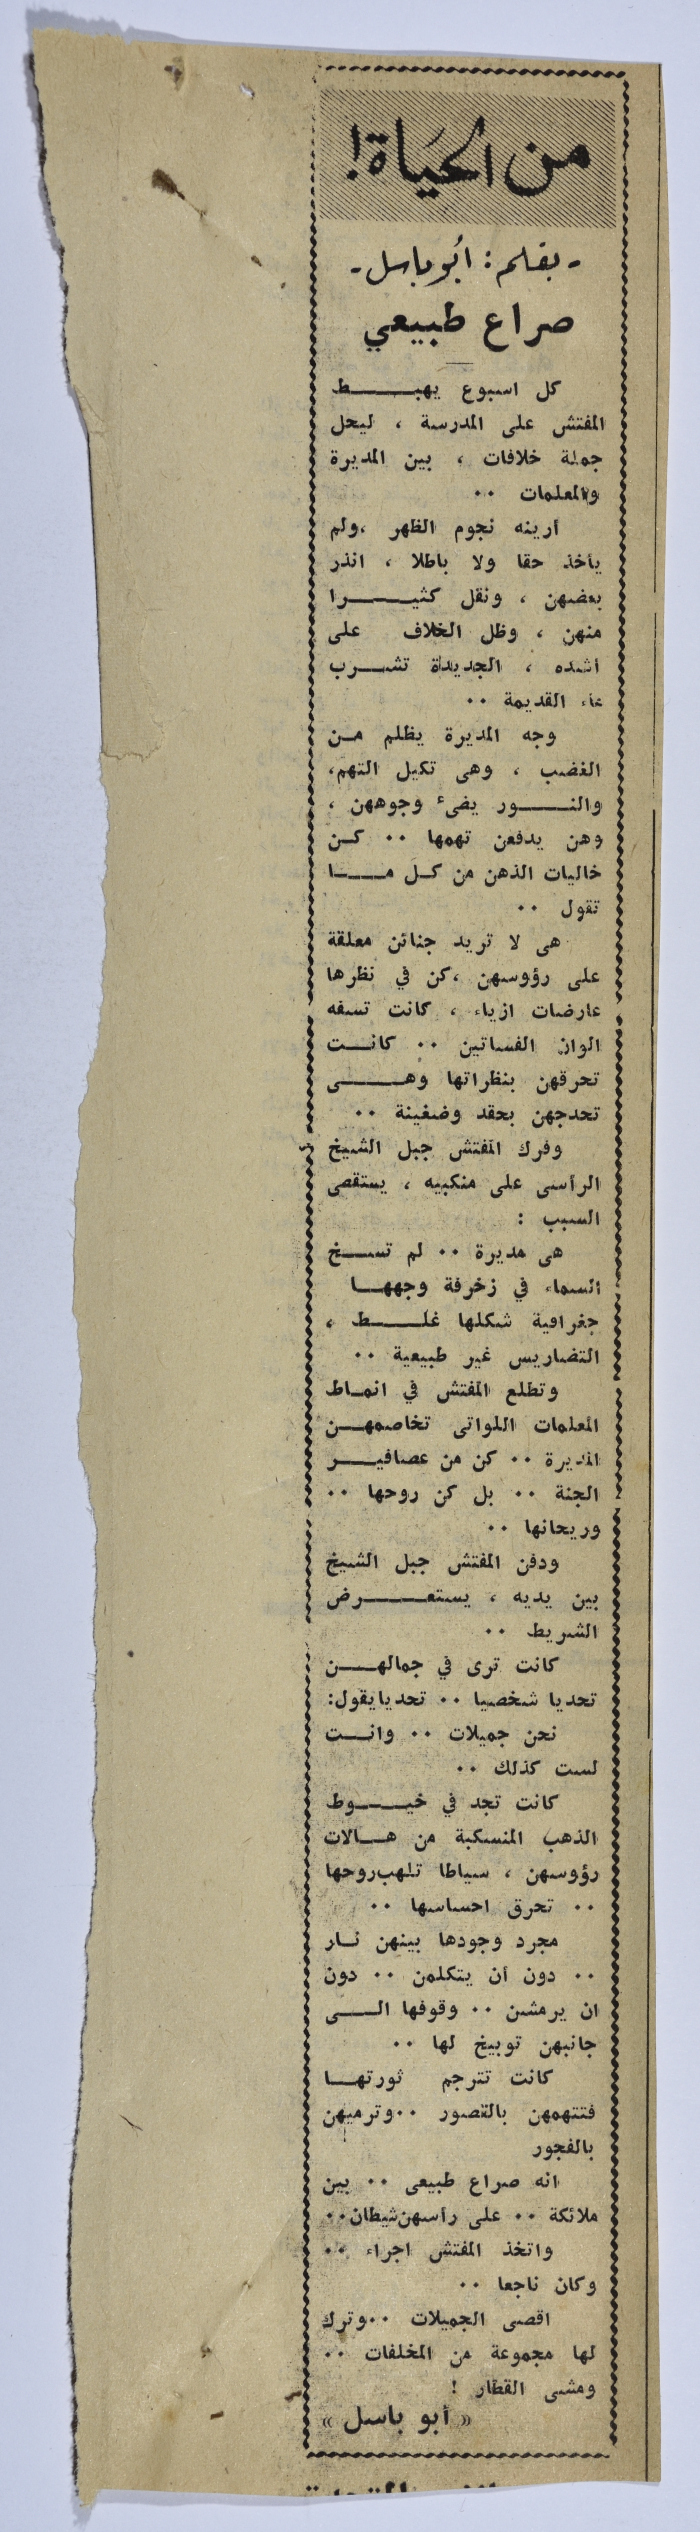 من الحياة!
- بقلم : أبو باسل -
صراع طبيعي
كل اسبوع يهبـــــط
المفتش على المدرسة ، ليحل
جملة خلافات ، بين المديرة
والمعلمات ٠٠
أرينه نجوم الظهر ،ولم
يأخذ حقا ولا باطلا ، انذر
بعضهن ، ونقل كثيـــــرا
منهن ، وظل الخلاف على
أشده ، الجديدة تشـــرب
ماء القديمة ٠٠
وجه المديرة يظلم مـن
الغضب ، وهى تكيل التهم،
والنـــــور يضىء وجوههن ،
وهن يدفعن تهمها ٠٠ كـن
خاليات الذهن من كـل مــــا
تقول ٠٠
هى لا تريد جنائن معلقة
على رؤوسهن ،كن في نظرها
عارضات ازياء ، كانت تسفه
الوان الفساتين ٠٠ كانـــت
تحرقهن بنظراتها وهــــــى
تحدجهن بحقد وضغينة ٠٠
وفرك المفتش جبل الشيخ
الرأسى على منكبيه ، يستقصى
السبب :
هى مديرة ٠٠ لم تســــخ
السماء في زخرفة وجههـــا
جغرافية شكلها غلـــــط ،
التضاريس غير طبيعية ٠٠
وتطلع المفتش في انمـاط
المعلمات اللواتى تخاصمهـــن
المديرة ٠٠ كن من عصافيـــر
الجنة ٠٠ بل كن روحها ٠٠
وريحانها ٠٠
ودفن المفتش جبل الشيخ
بين يديه ، يستعـــــرض
الشريط ٠٠
كانت ترى في جمالهـــن
تحديا شخصيا ٠٠ تحديايقول:
نحن جميلات ٠٠ وانـــت
لست كذلك ٠٠
كانت تجد في خيـــــوط
الذهب المنسكبة من هـــالات
رؤوسهن ، سياطا تلهب روحها
٠٠ تحرق احساسها ٠٠
مجرد وجودها بينهن نـار
٠٠ دون أن يتكلمن ٠٠ دون
ان يرمشن ٠٠ وقوفها الـــى
جانبهن توبيخ لها ٠٠
كانت تترجم ثورتهـــا
فتتهمهن بالقصور ٠٠وترميهن
بالفجور
انه صراع طبيعى ٠٠ بين
ملائكة ٠٠ على رأسهن شيطان٠٠
واتخذ المفتش اجراء ٠٠
وكان ناجعا ٠٠
اقصى الجميلات ٠٠وترك
لها مجموعة من المخلفات ٠٠
ومشى القطار !
« أبو باسل »